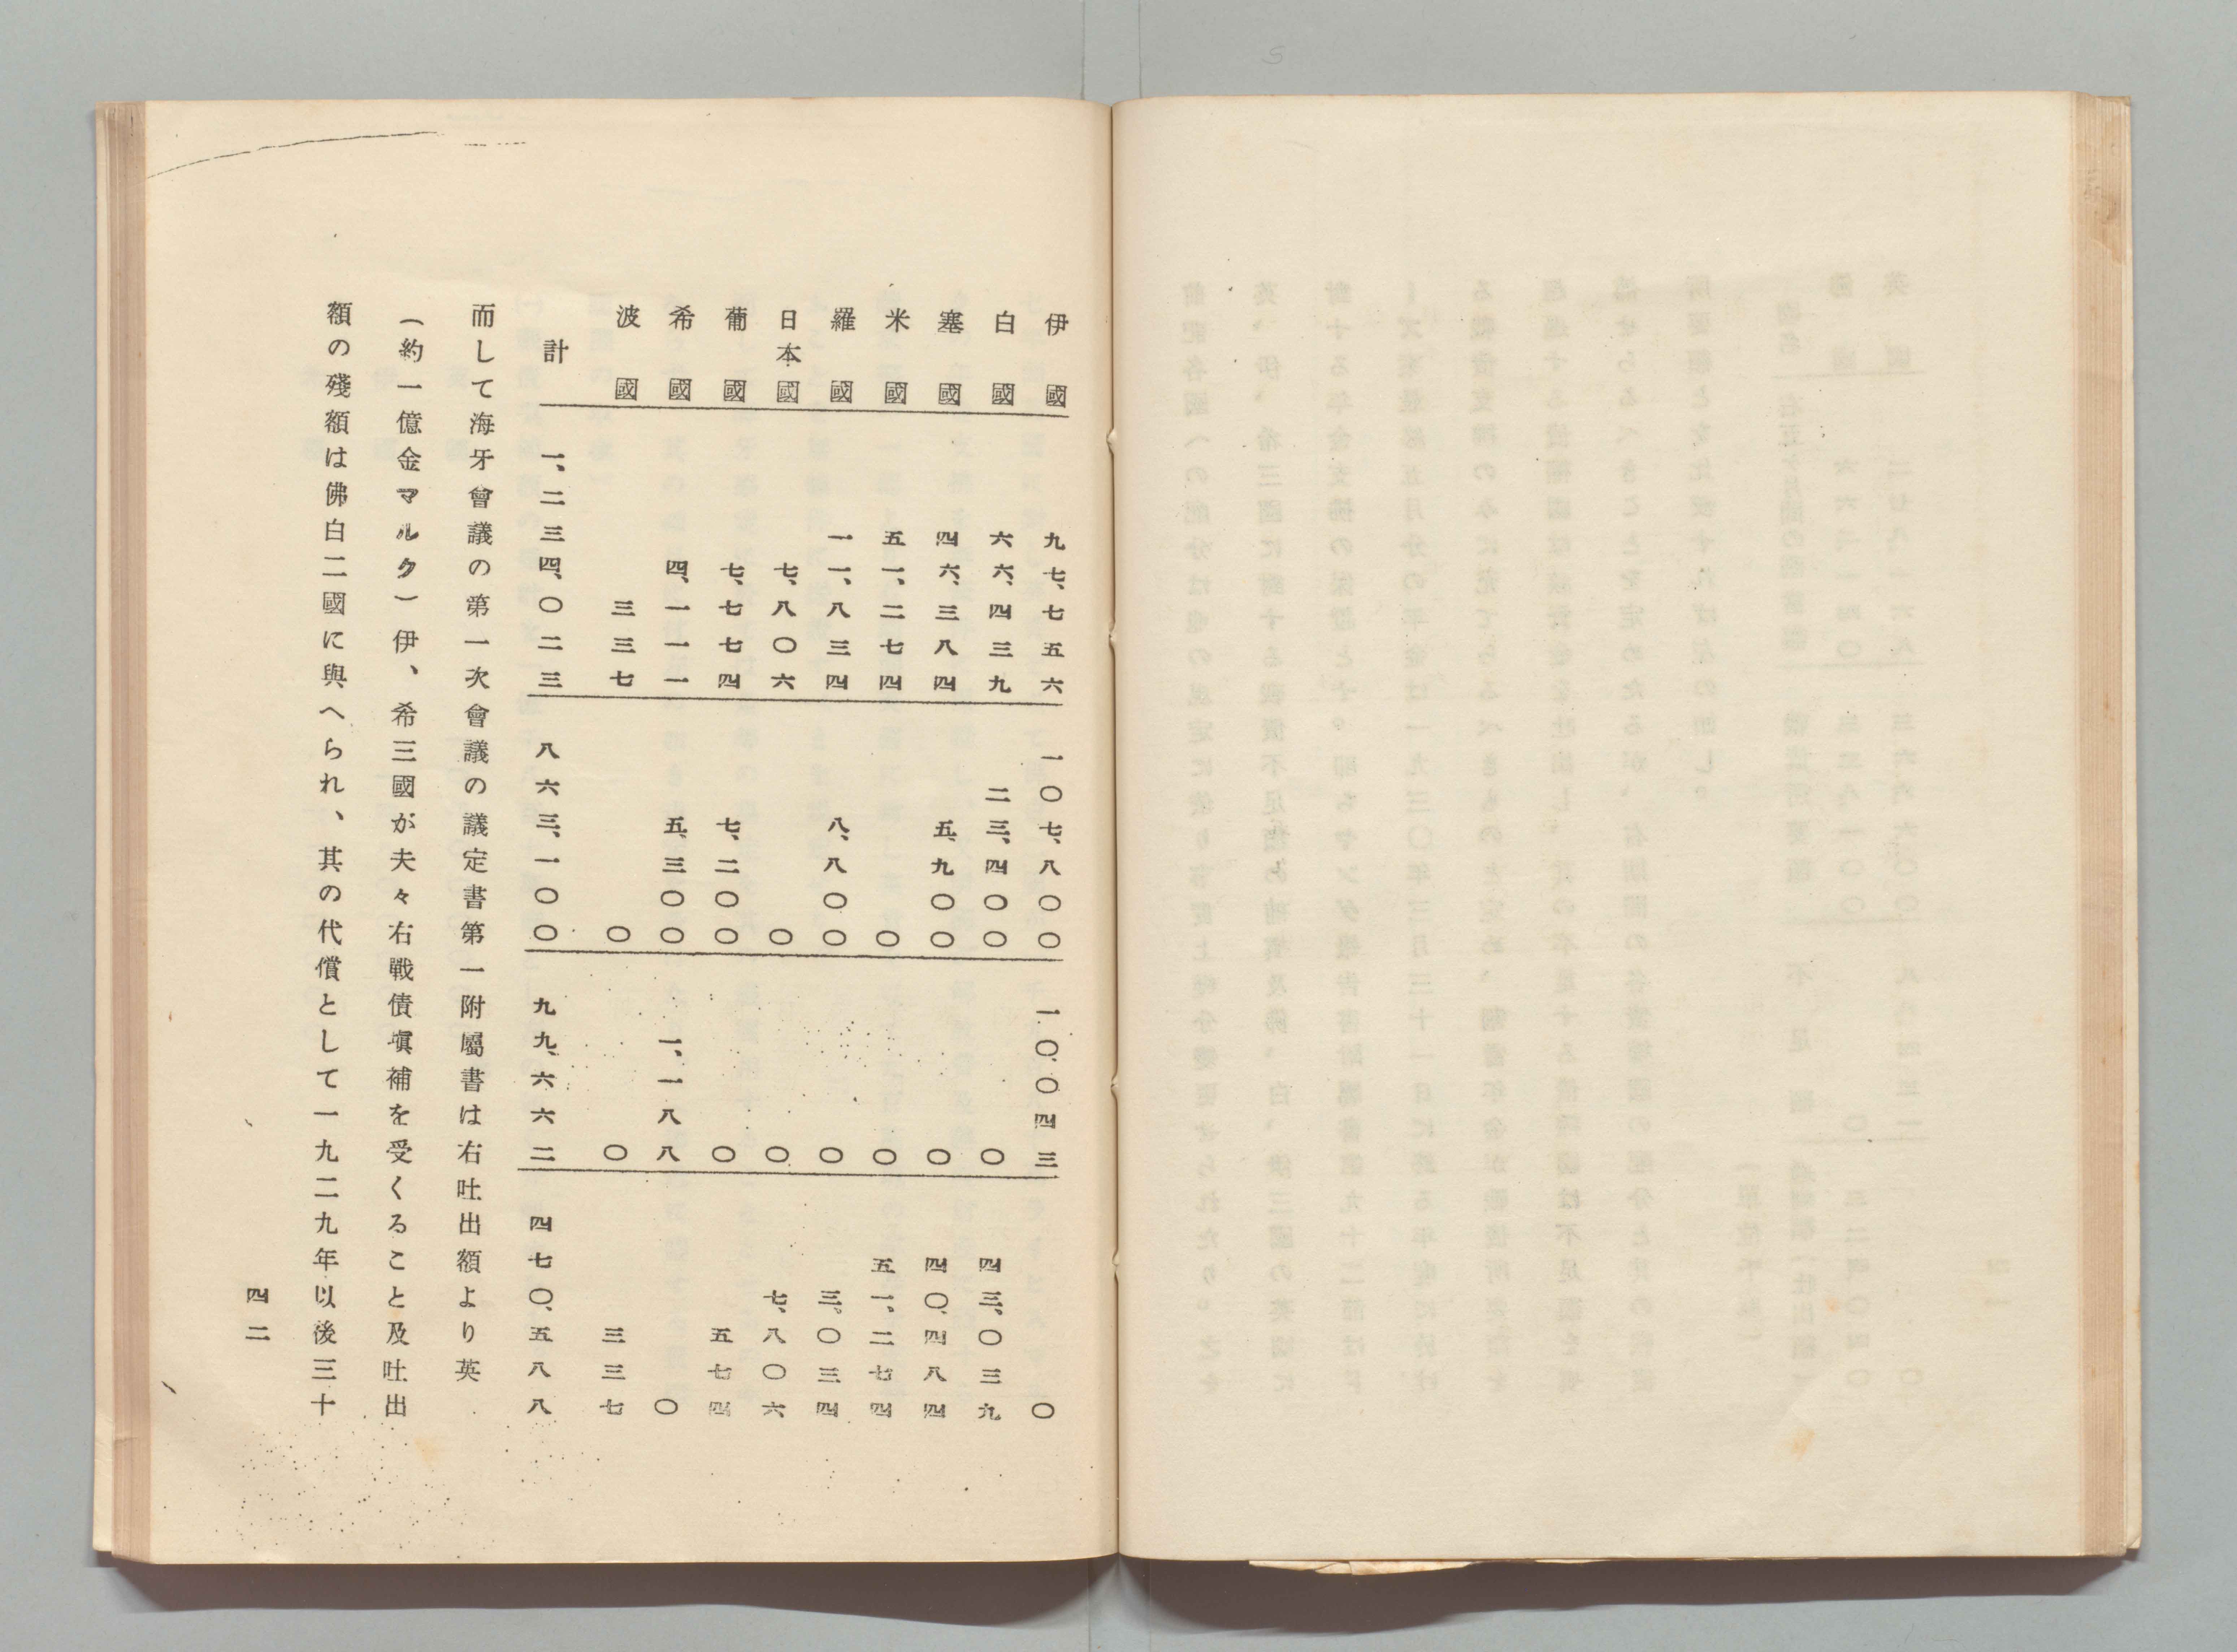 伊國 九七、七五六 一〇七、八〇〇 一〇、〇四三 〇
白國 六六、四三九 二三、四〇〇 〇 四三、〇三九
塞國 四六、三八四 五、九〇〇 〇 四〇、四八四
米國 五一、二七四 〇 〇 五一、二七四
羅國 一一、八三四 八、八〇〇 〇 三、〇三四
日本國 七、八〇六 〇 〇 七、八〇六
葡國 七、七七四 七、二〇〇 〇 五七四
希國 四、一一一 五、三〇〇 一、一八八 〇
波國 三三七 〇 〇 三三七
計 一、二三四、〇二三 八六三、一〇〇 九九、六六二 四七〇、五八八
而して海牙會議の第一次會議の議定書第一附屬書は右吐出額より英
（約一億金マルク）伊、希三國が夫々右戰債塡補を受くること及吐出
額の殘額は佛白二國に與へられ、其の代償として一九二九年以後三十
四二